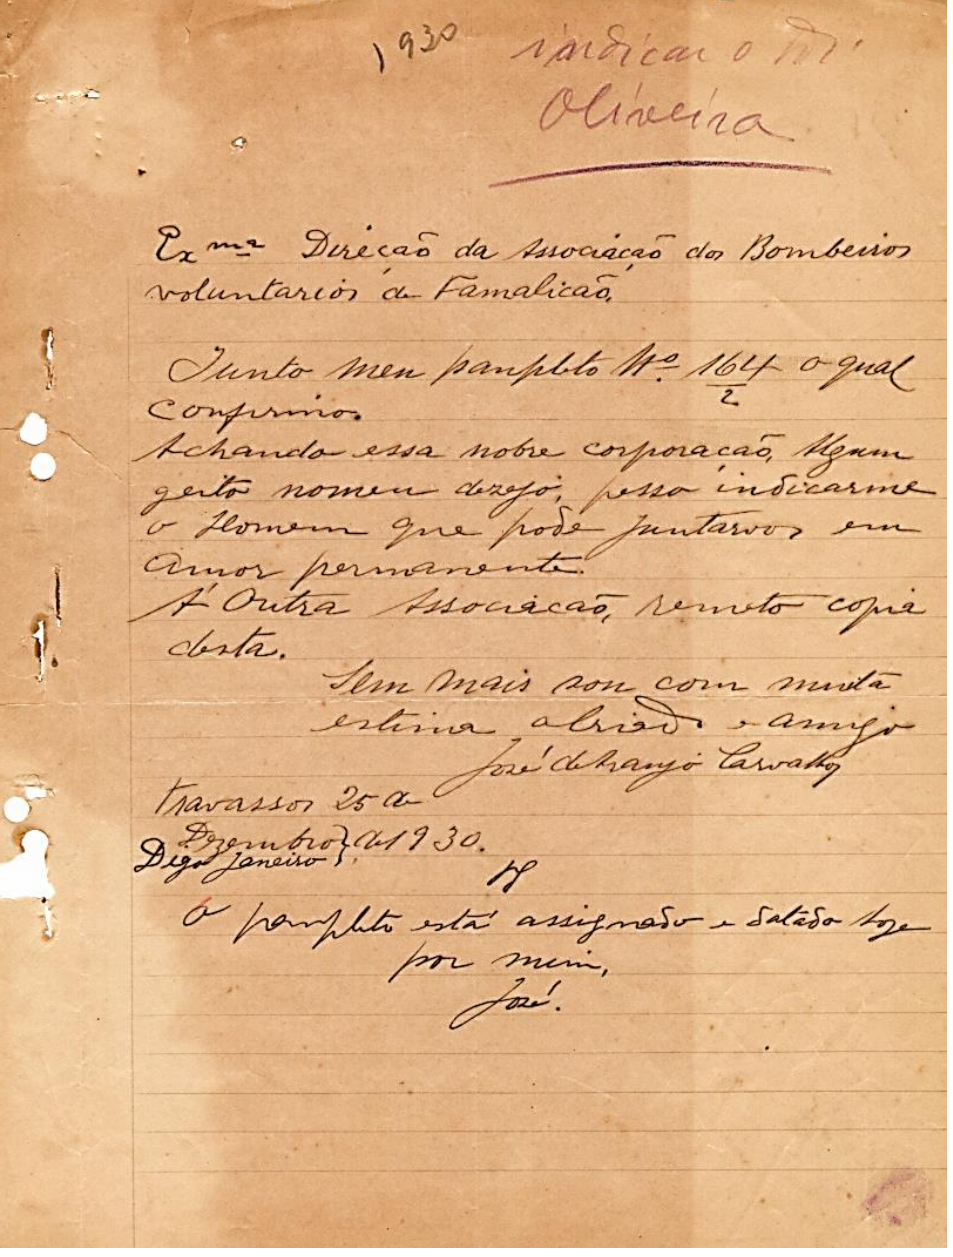 1930
indicar o Sr.
Oliveira
Exmª Direcão da Associacão dos Bombeiros
voluntarios de Famalicão,
Junto meu panpleto Nº. 164/2 o qual
confirmo.
Achando essa nobre corporacão, Algum
geito nomeu dezejo, pesso indicarme
o Homem que pode Juntarvos em
Amor permanente.
A' Outra Associacão, remeto copia
desta.
Sem mais sou com muita
estima e amigo
José de Araujo Carvalho
Travassos 25 de
Dezembro } de 1930.
Digo Janeiro
O panpleto está assignado e datado hoje
por mim,
José.